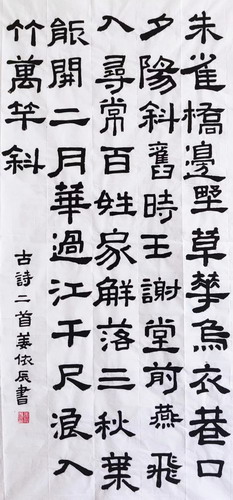 朱雀橋邊野草華烏衣巷口
夕陽斜舊時王謝堂前燕飛
入尋常百姓家解落三秋葉
能開二月華過江千尺浪入
竹萬竿斜
古詩二首姜依辰書